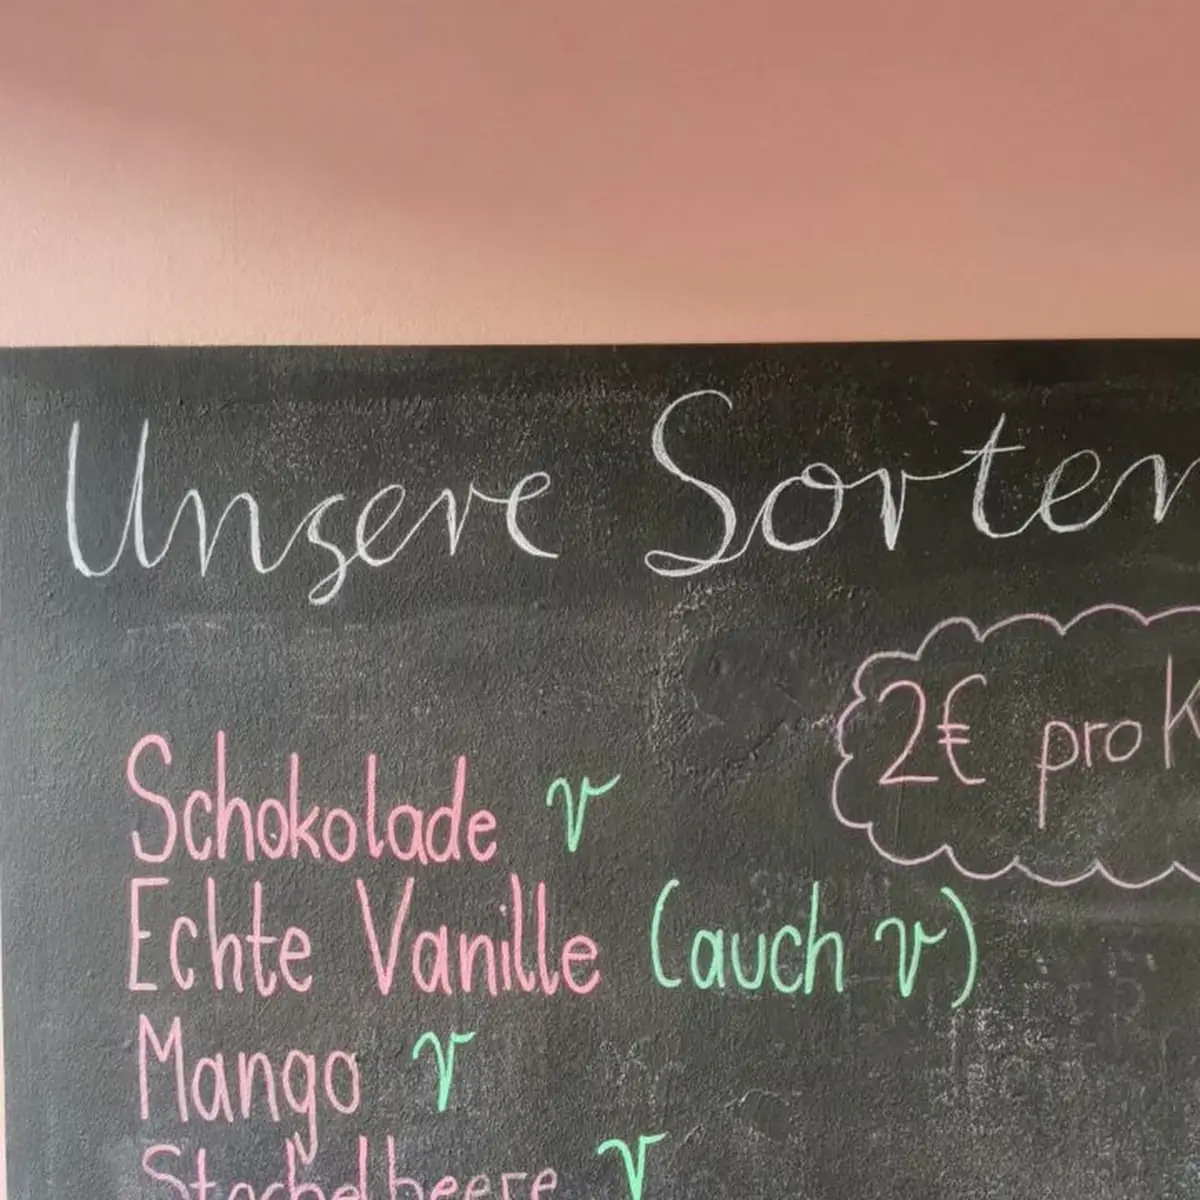 Unsere Sorten
2€ pro K
Schokolade v
Echte Vanille (auch v)
Mango v
Stachelbeere v